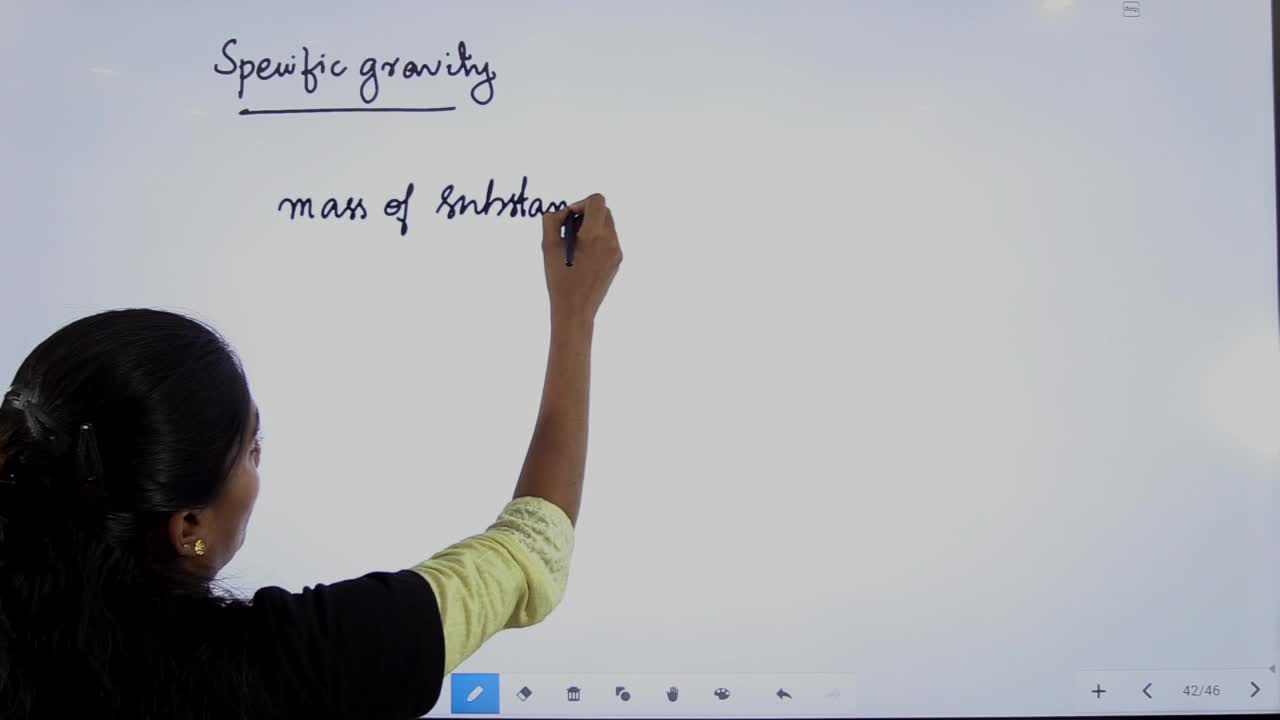 Specific gravity
mass of substan
42/46